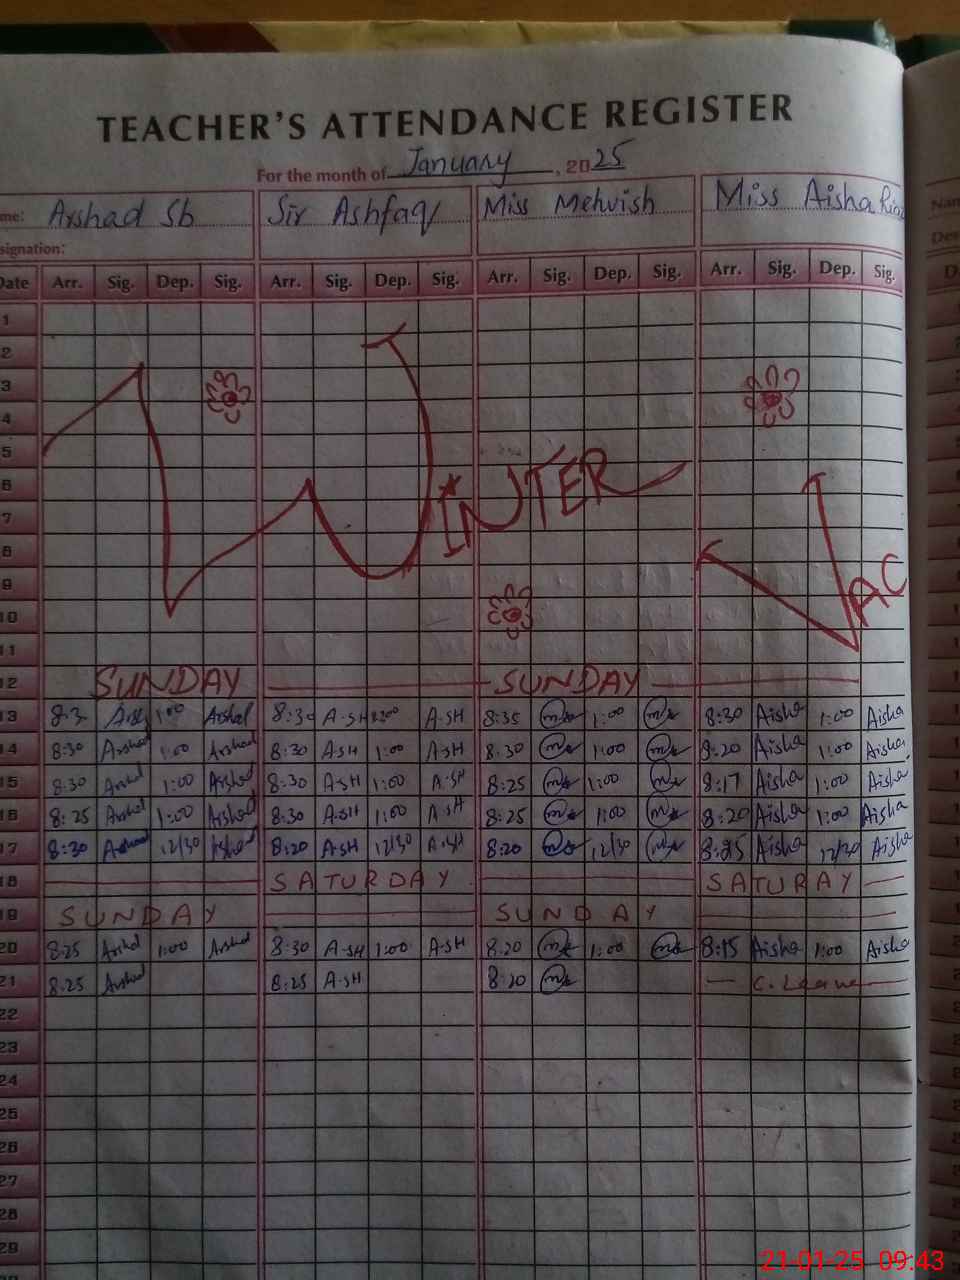 TEACHER'S ATTENDANCE REGISTER
For the month of January, 2025
me: Arshad Sb Sir Ashfaq Miss Mehvish Miss Aisha Riaz
signation:
Date Arr. Sig. Dep. Sig. Arr. Sig. Dep. Sig. Arr. Sig. Dep. Sig. Arr. Sig. Dep. Sig.
1
2
3
4
5
6
7
8
9
10
11
WINTER VAC
12 SUNDAY SUNDAY
13 8:3 1:00 Arshad 8:30 A-SH A-SH 8:35 1:00 8:30 Aisha 1:00 Aisha
14 8:30 Arshad 1:00 Arshad 8:30 A-SH 1:00 A-SH 8:30 1:00 8:20 Aisha 1:00 Aisha
15 8:30 Arshad 1:00 Arshad 8:30 A-SH 1:00 A-SH 8:25 1:00 8:17 Aisha 1:00 Aisha
16 8:25 Arshad 1:00 Arshad 8:30 A-SH 1:00 A-SH 8:25 1:00 8:20 Aisha 1:00 Aisha
17 8:30 Arshad 12/30 Arshad 8:20 A-SH 12/30 A-SH 8:20 12/30 8:25 Aisha 12/30 Aisha
18 SATURDAY SATURAY
19 SUNDAY SUNDAY
20 8:25 Arshad 1:00 Arshad 8:30 A-SH 1:00 A-SH 8:20 1:00 8:15 Aisha 1:00 Aisha
21 8:25 Arshad 8:25 A-SH 8:20 C. Leave
22
23
24
25
26
27
28
29
21-01-25 09:43